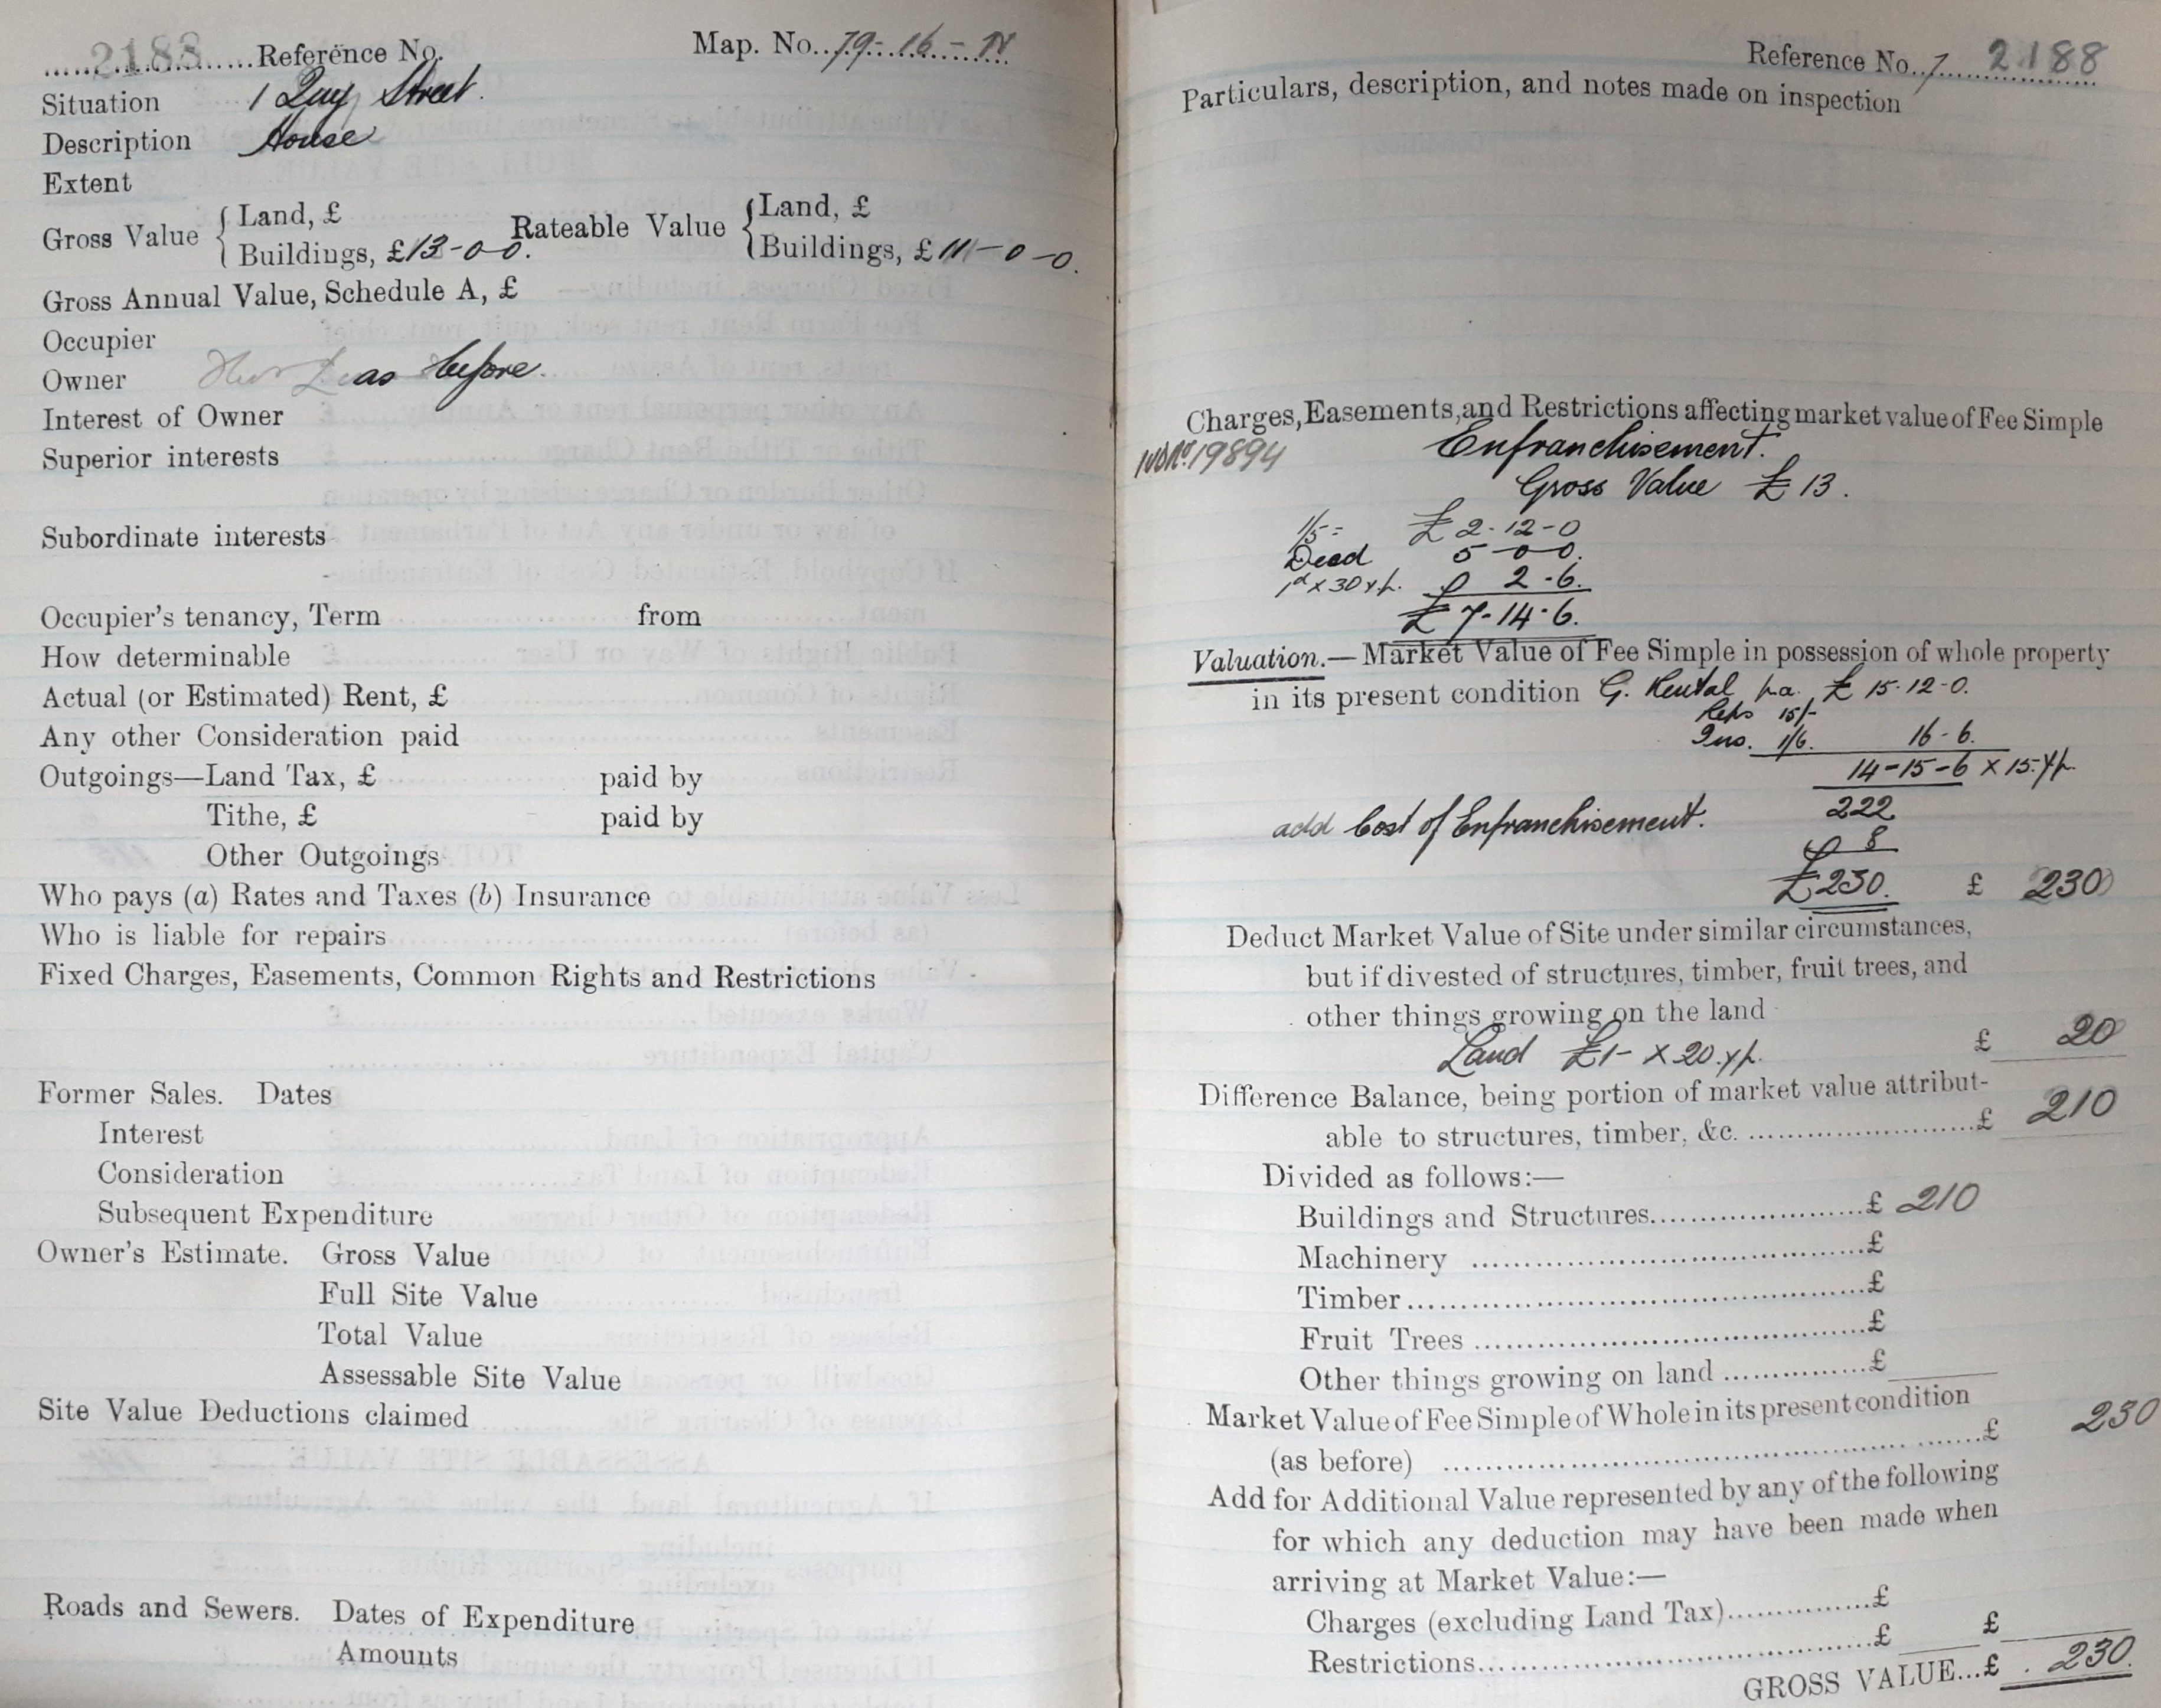 2188 Reference No. Map. No. 79-16-IV
Situation 1 Quay Street.
Description House
Extent
Gross Value { Land, £ Rateable Value { Land, £
Buildings, £13-0-0. Buildings, £11-0-0.
Gross Annual Value, Schedule A, £
Occupier
Owner as before.
Interest of Owner
Superior interests
Subordinate interests
Occupier's tenancy, Term from
How determinable
Actual (or Estimated) Rent, £
Any other Consideration paid
Outgoings—Land Tax, £ paid by
Tithe, £ paid by
Other Outgoings
Who pays (a) Rates and Taxes (b) Insurance
Who is liable for repairs
Fixed Charges, Easements, Common Rights and Restrictions
Former Sales. Dates
Interest
Consideration
Subsequent Expenditure
Owner's Estimate. Gross Value
Full Site Value
Total Value
Assessable Site Value
Site Value Deductions claimed
Roads and Sewers. Dates of Expenditure
Amounts
Reference No. 2188
Particulars, description, and notes made on inspection
Charges, Easements, and Restrictions affecting market value of Fee Simple
19894 Enfranchisement.
Gross Value £13.
1/5 = £2-12-0
Deed 5-0-0.
1d x 30 y.p. 2-6.
£7-14-6.
Valuation.—Market Value of Fee Simple in possession of whole property
in its present condition G. Rental p.a. £15-12-0.
Reps 15/-
Ins. 1/6. 16-6.
14-15-6 x 15 y.p.
222
add Cost of Enfranchisement. 8
£230. £ 230
Deduct Market Value of Site under similar circumstances,
but if divested of structures, timber, fruit trees, and
other things growing on the land
Land £1- x 20 y.p. £ 20
Difference Balance, being portion of market value attribut-
able to structures, timber, &c. £ 210
Divided as follows:—
Buildings and Structures £ 210
Machinery £
Timber £
Fruit Trees £
Other things growing on land £
Market Value of Fee Simple of Whole in its present condition
(as before) £ 230
Add for Additional Value represented by any of the following
for which any deduction may have been made when
arriving at Market Value:—
Charges (excluding Land Tax) £
Restrictions £ £
GROSS VALUE...£ 230.